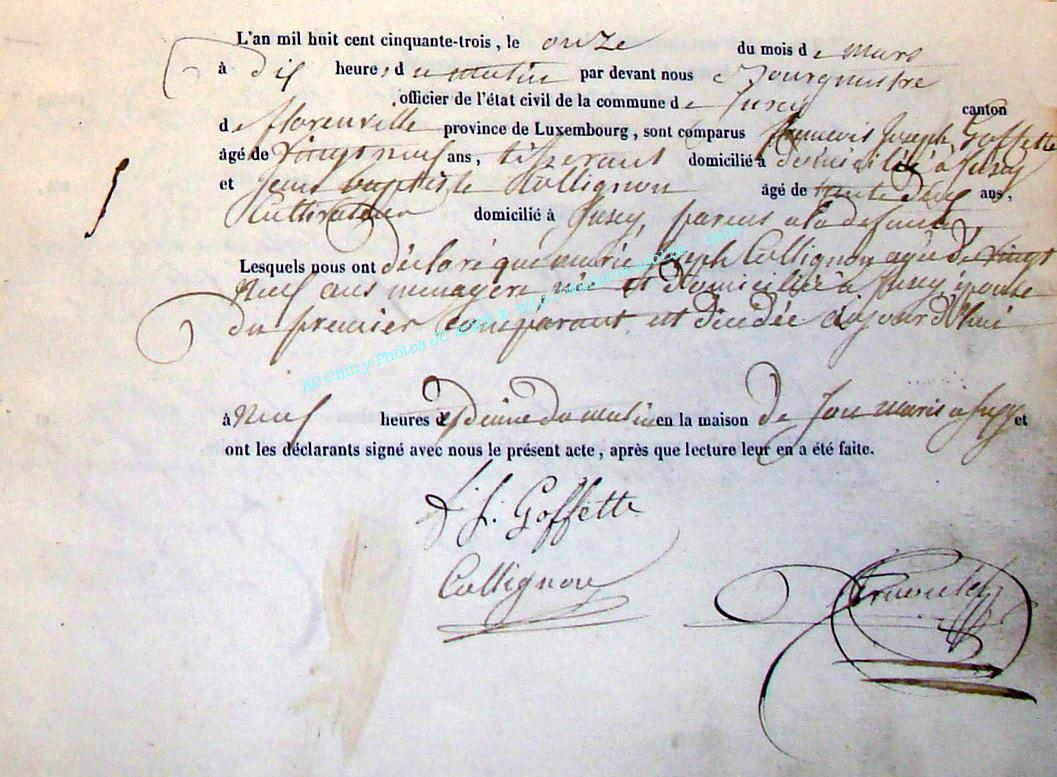 L'an mil huit cent cinquante-trois, le onze du mois de mars
à dix heures du matin par devant nous Bourgmestre
officier de l'état civil de la commune de Jusey canton
de florenville province de Luxembourg, sont comparus francois Joseph Goffette
âgé de vingt neuf ans, tisserant domicilié à domicilié à Jusey
et Jean baptiste Collignon âgé de trente deux ans,
Cultivateur domicilié à Jusey, parens a la defunte,
Lesquels nous ont déclaré que marie Joseph Collignon agée de vingt
neuf ans menagère née et domiciliée à Jusey épouse
du premier Comparant est décédée aujourd'hui
à neuf heures et demie du matin en la maison de son maris a Jusey et
ont les déclarants signé avec nous le présent acte, après que lecture leur en a été faite.
f. j. Goffette
Collignon
AC Chiny Photos